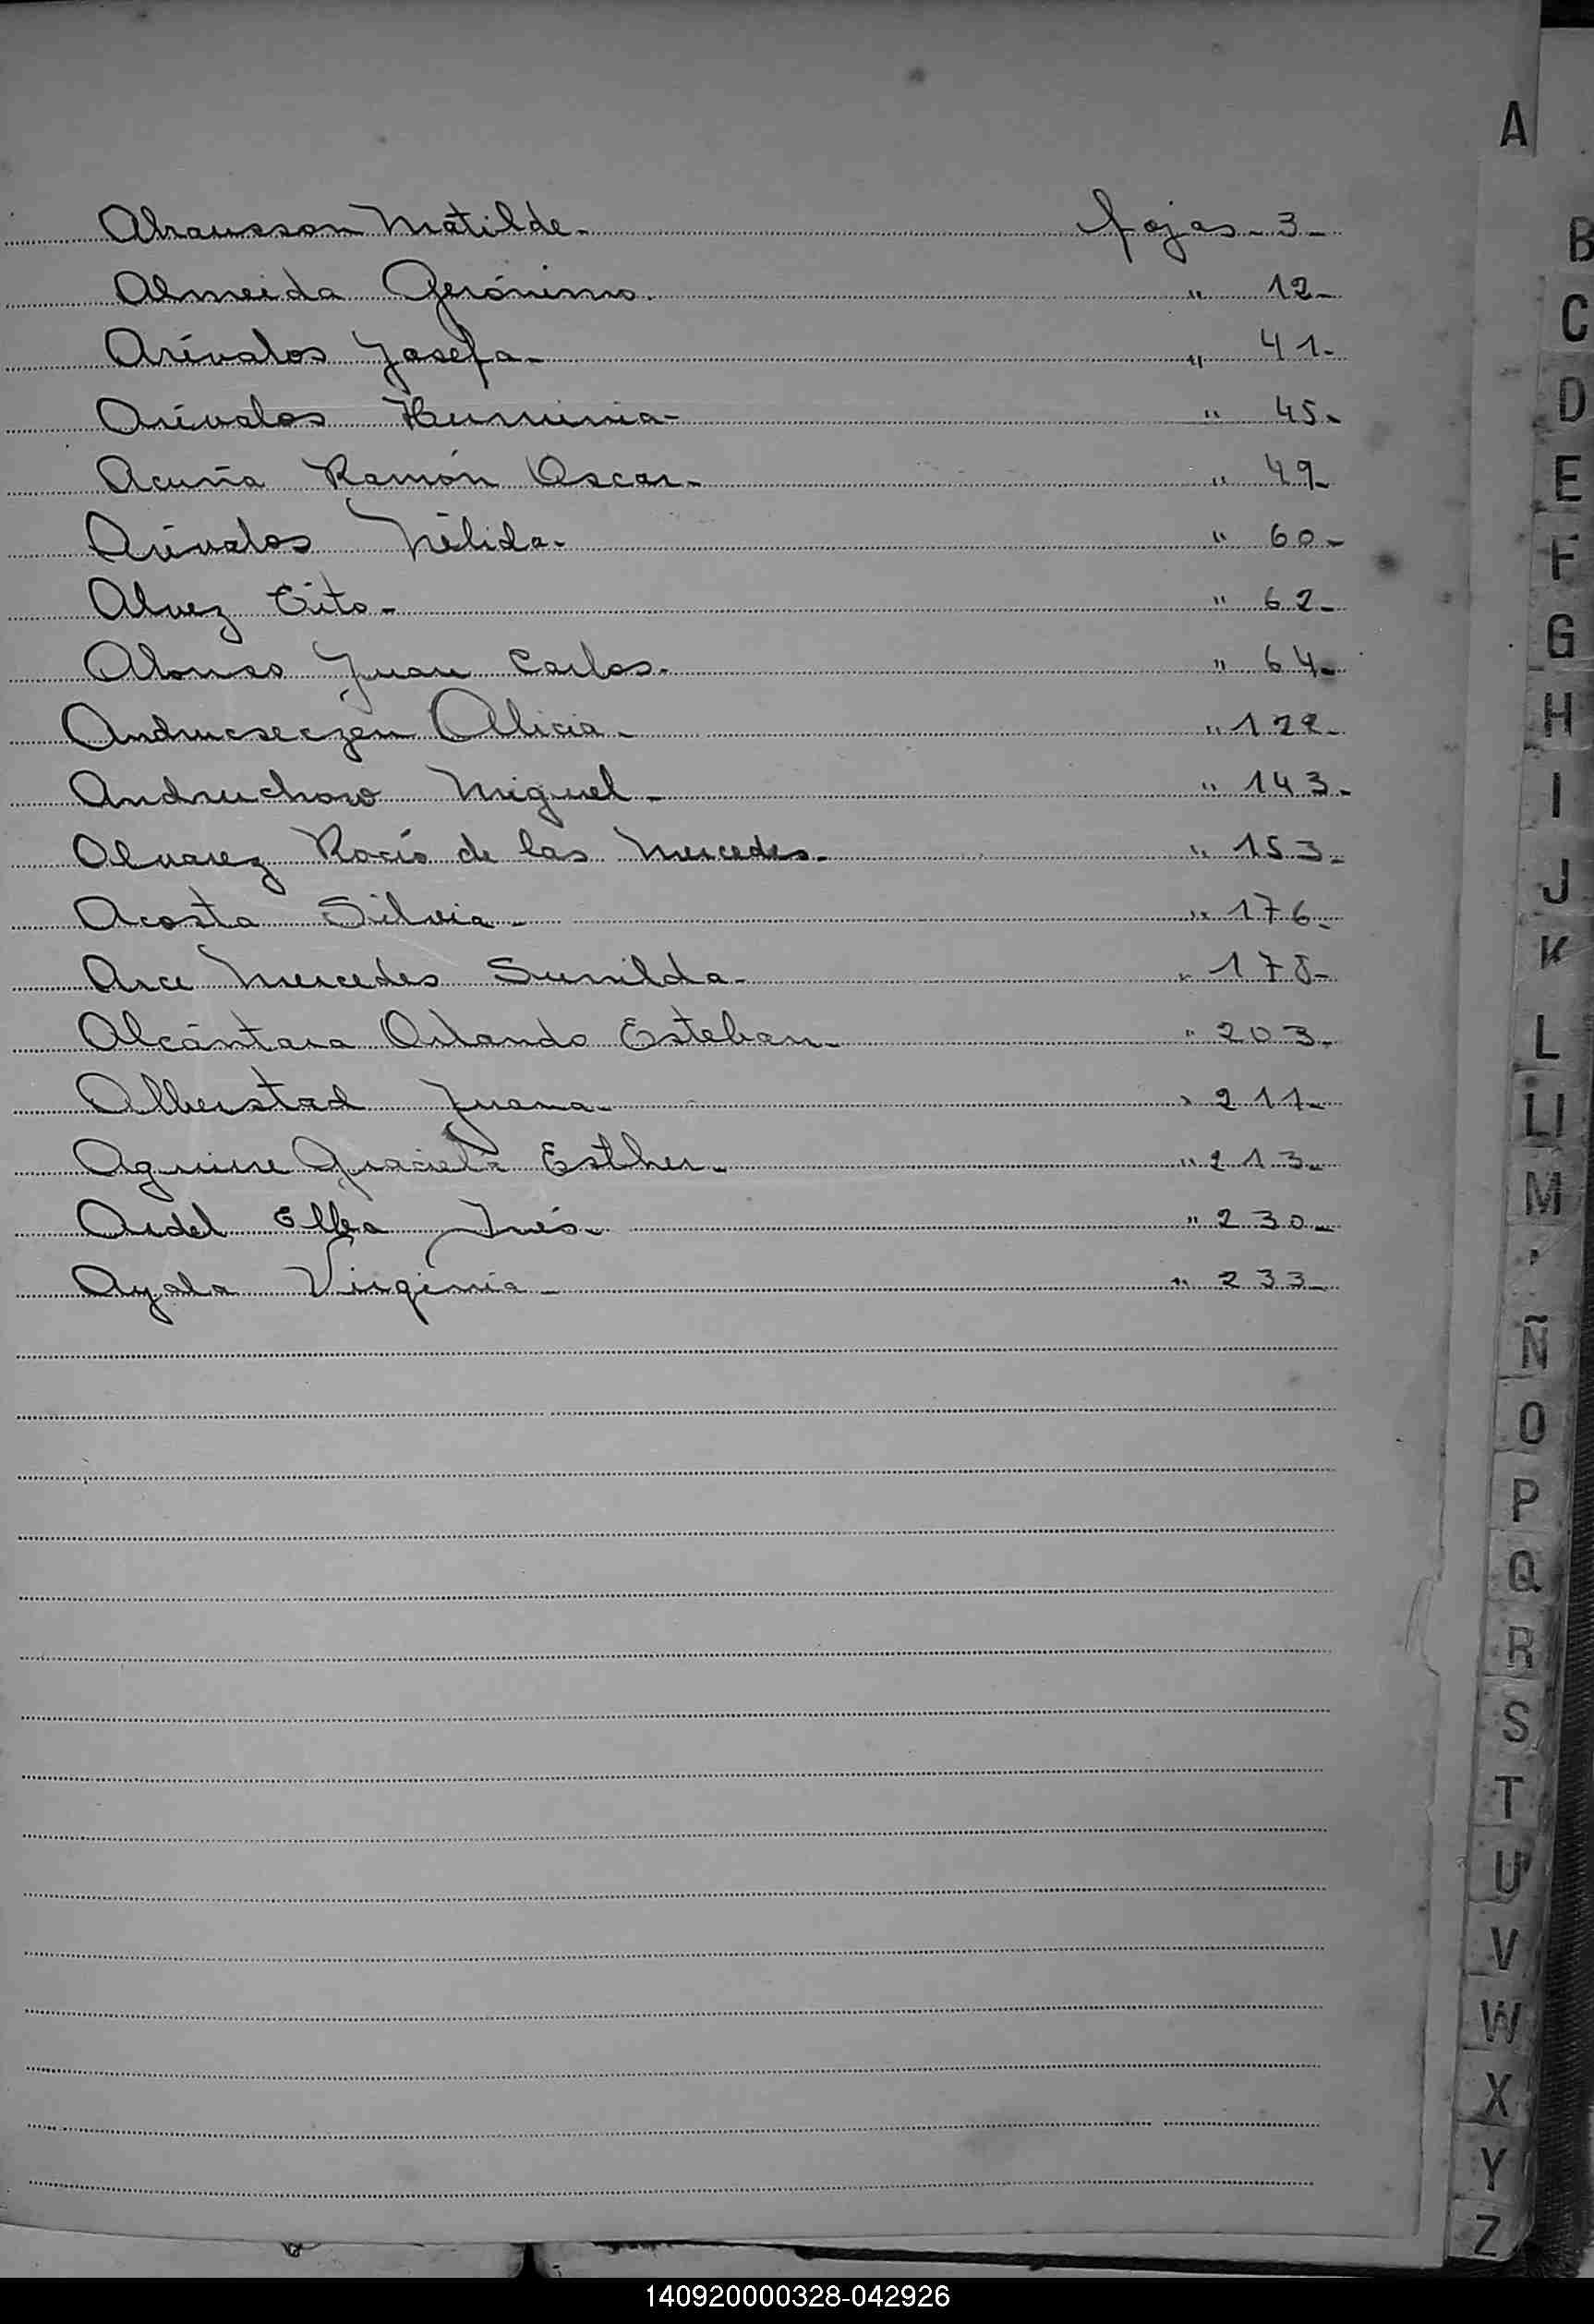 A
Abrausson Matilde - fojas - 3 -
Almeida Gerónimo. " 12 -
Arévalos Josefa - " 41 -
Arévalos Herminia - " 45 -
Acuña Ramón Oscar - " 49 -
Arévalos Nélida - " 60 -
Alvez Tito - " 62 -
Alonso Juan Carlos - " 64 -
Alicia - " 122 -
Andruchow Miguel - " 143 -
Alvarez Rocío de las Mercedes - " 153 -
Acosta Silvia - " 176 -
Arce Mercedes Sunilda - " 178 -
Alcántara Orlando Esteban - " 203 -
Alberstad Juana - " 211 -
Aguirre Graciela Esther - " 213 -
Ardel Elba Inés - " 230 -
Ayala Virginia - " 233 -
B
C
D
E
F
G
H
I
J
K
L
Ll
M
Ñ
O
P
Q
R
S
T
U
V
W
X
Y
Z
140920000328-042926